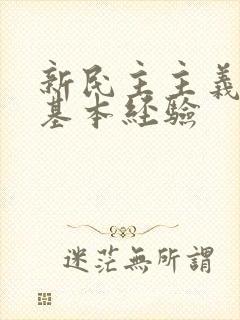 新民主主義
基本経驗
迷茫無所謂